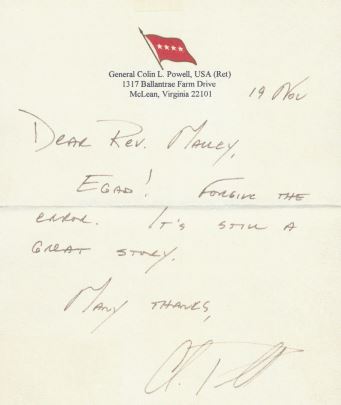 General Colin L. Powell, USA (Ret)
1317 Ballantrae Farm Drive
McLean, Virginia 22101
19 Nov
Dear Rev. Mauey,
Egad! Forgive the
error. It's still a
great story.
Many thanks,